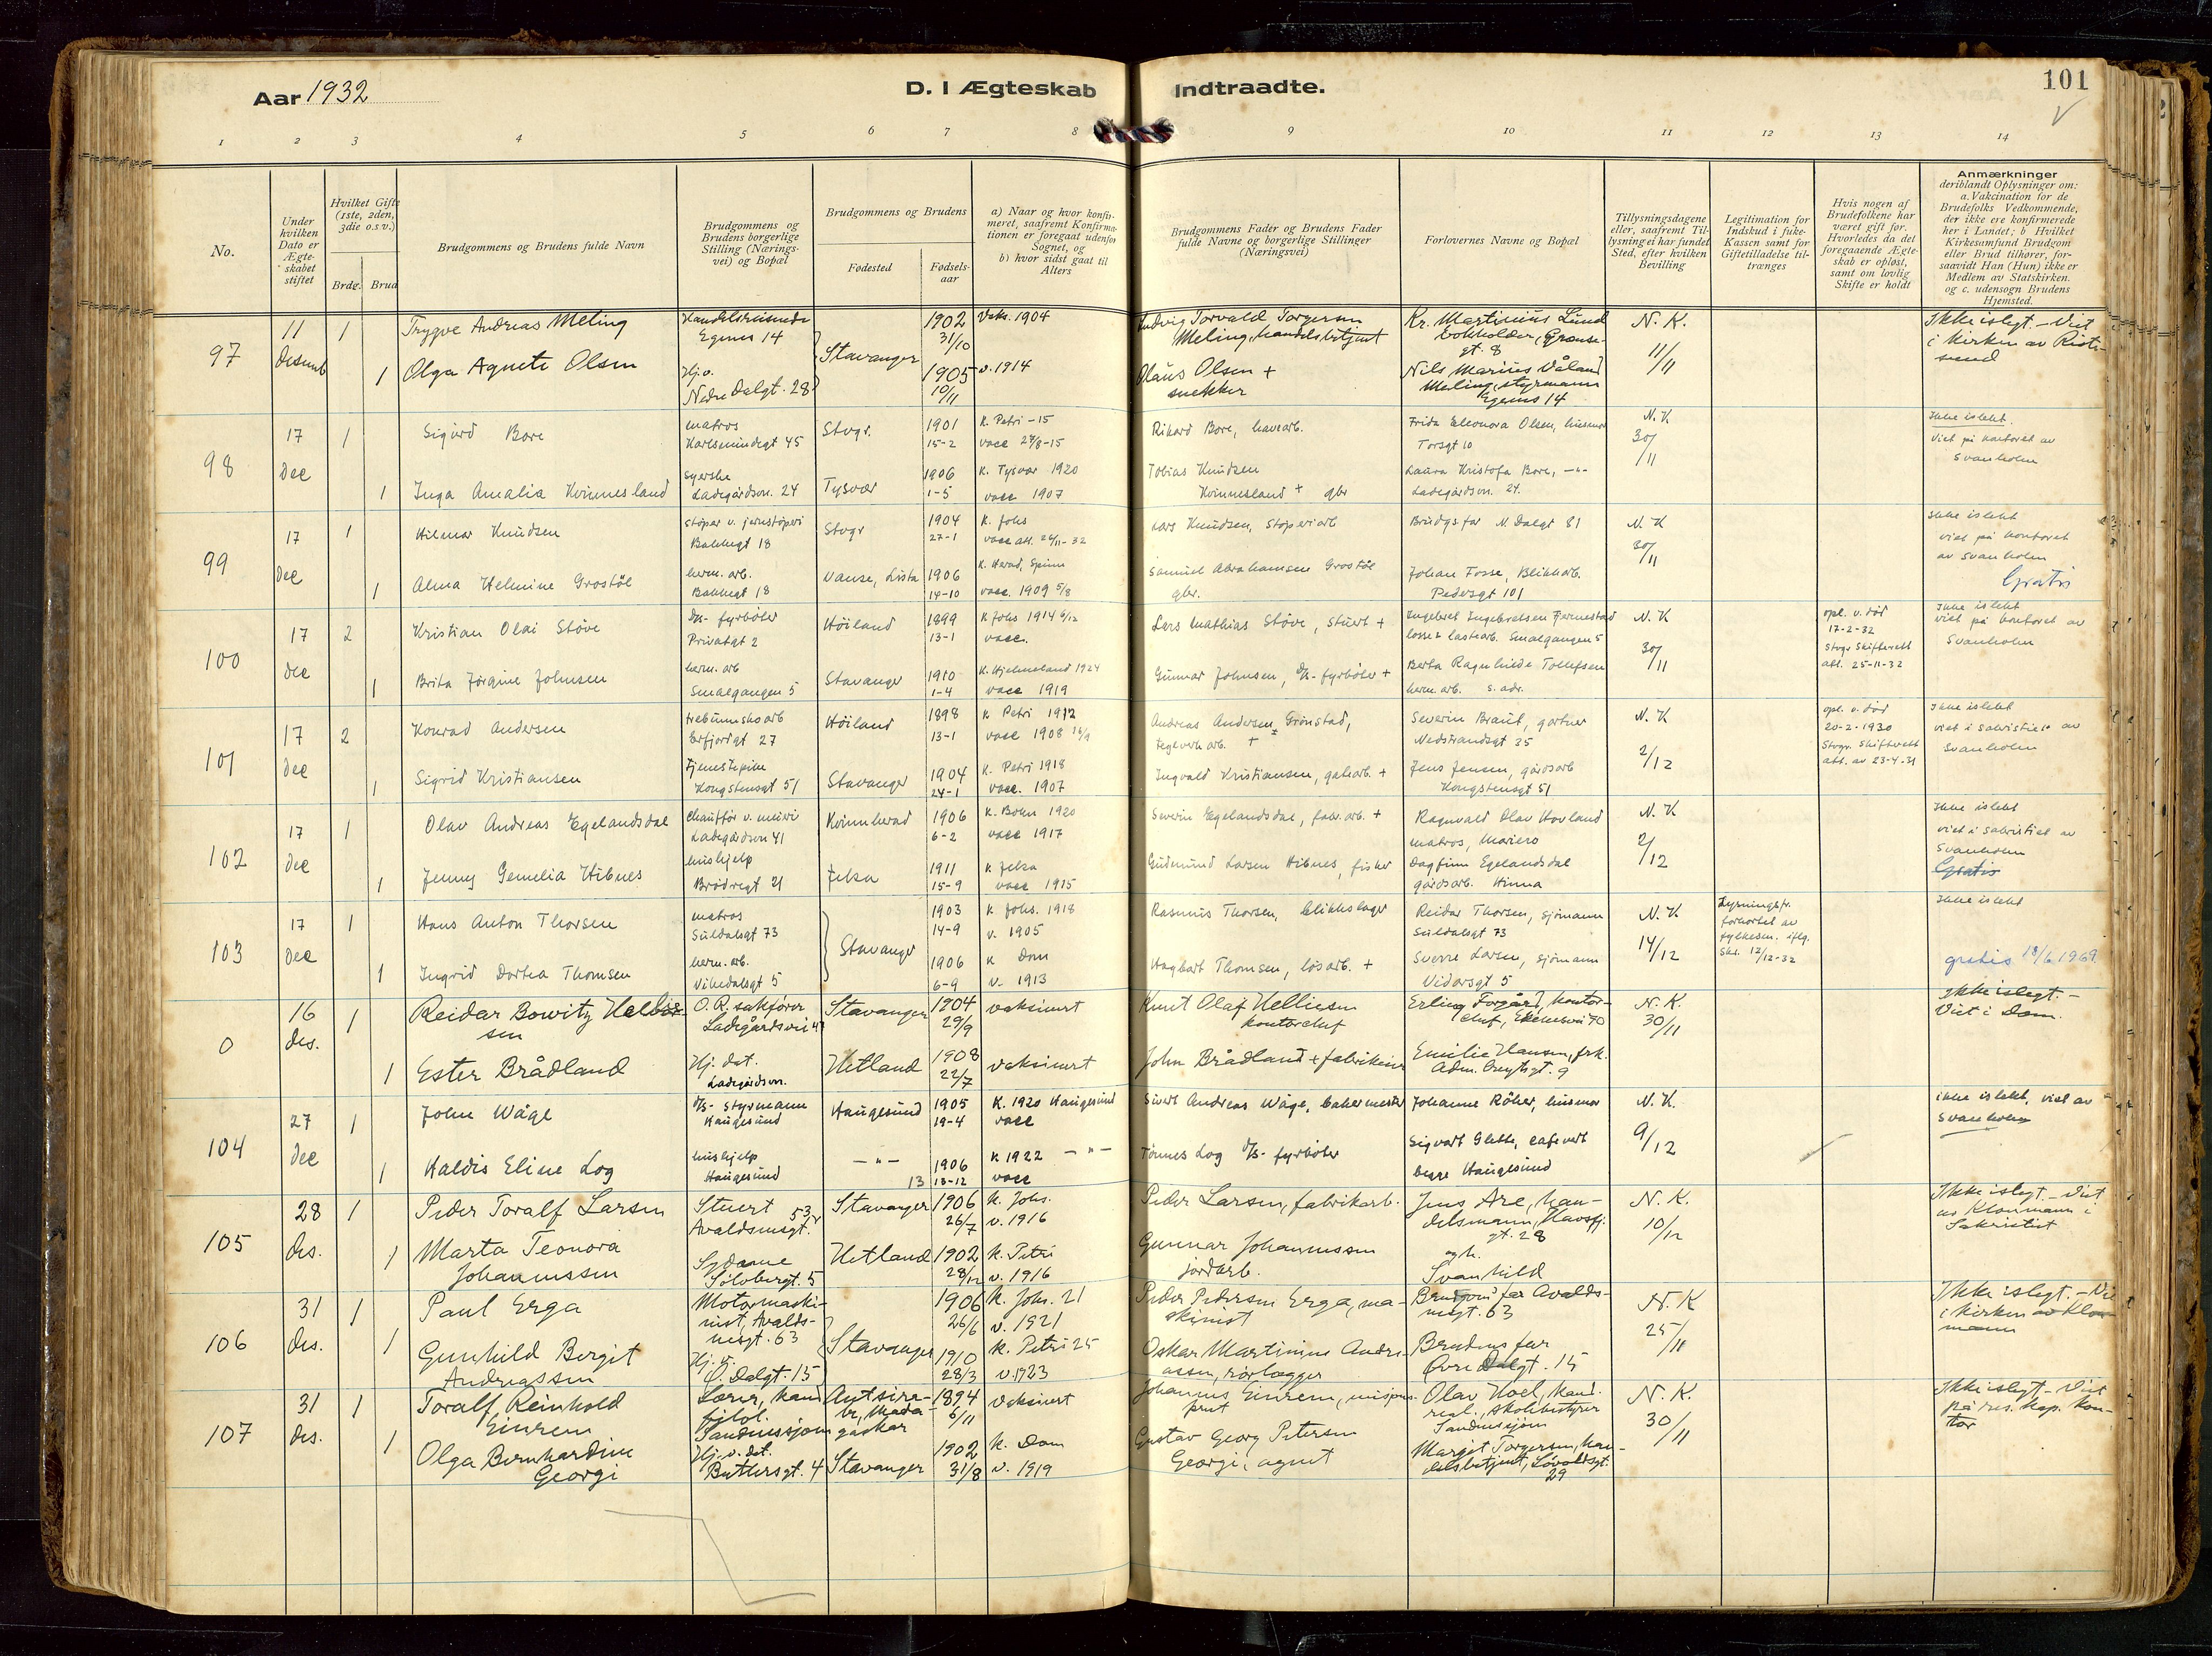 Aar 1932
D. I Ægteskab Indtraadte.
101
1 2 3 4 5 6 7 8 9 10 11 12 13 14
No.
Under hvilken Dato er Ægteskabet stiftet
Hvilket Gifte (1ste, 2den, 3die o.s.v.)
Brdg. Brud
Brudgommens og Brudens fulde Navn
Brudgommens og Brudens borgerlige Stilling (Næringsvei) og Bopæl
Brudgommens og Brudens
Fødested
Fødselsaar
a) Naar og hvor konfirmeret, saafremt Konfirmationen er foregaat udenfor Sognet, og
b) hvor sidst gaat til Alters
Brudgommens Fader og Brudens Fader fulde Navne og borgerlige Stillinger (Næringsvei)
Forlovernes Navne og Bopæl
Tillysningsdagene eller, saafremt Tillysning ei har fundet Sted, efter hvilken Bevilling
Legitimation for Indskud i fuke-Kassen samt for Giftetilladelse tiltrænges
Hvis nogen af Brudefolkene har været gift før. Hvorledes da det foregaaende Ægteskab er opløst, samt om lovlig Skifte er holdt
Anmærkninger
deriblandt Oplysninger om: a. Vakcination for de Brudefolks Vedkommende, der ikke ere konfirmerede her i Landet; b Hvilket Kirkesamfund Brudgom eller Brud tilhører, forsaavidt Han (Hun) ikke er Medlem av Statskirken. og c. udensogn Brudens Hjemsted.
97
11 Desemb
1 Trygve Andreas Meling
Handelsreisende Egenes 14
Stavanger
1902 31/10
Vaks. 1904
Ludvig Torvald Torgersen Meling, handelsbetjent
Kr. Martinius Lund bokholder, Grensegt. 8
N. K. 11/11
Ikke islegt. - Viet i kirken av
1 Olga Agnete Olsen
Hj.v. Nedre Dalgt. 28
1905 10/11
v. 1914
Olaus Olsen + snekker
Nils Marius Våland Meling, styrmann Egenes 14
98
17 Dec
1 Sigurd Bore
matros Karlsmindegt 45
Stvgr.
1901 15-2
K. Petri -15 vacc 24/8-15
Rikard Bore, havearb.
Frida Eleonora Olsen, husmor Torsgt 10
N. K 30/11
Ikke islekt. Viet på kontoret av Svanholm
1 Inga Amalia Kvinnesland
syerske Ladegårdsvn. 24
Tysvær
1906 1-5
K. Tysvær 1920 vacc 1907
Tobias Knudsen Kvinnesland + gbr
Laura Kristofa Bore, -"- Ladegårdsvn. 24.
99
17 Dec
1 Hilmar Knudsen
støper v. jernstøperi Bakkegt 18
Stvgr
1904 27-1
K. Johs vacc att. 26/11-32
Lars Knudsen, støperiarb
Brudgs far N. Dalgt 81
N. K 30/11
Ikke islekt viet på kontoret av Svanholm
Gratis
1 Alma Helmine Grostøl
herm. arb. Bakkegt 18
Vanse, Lista
1906 14-10
K. Herad, vacc. 1909 5/8
Samuel Abrahamsen Grostøl gbr.
Johan Fosse, Blikkarb. Pedersgt 101
100
17 Dec
2 Kristian Olai Støve
D/s- fyrbøter Privatgt 2
Høiland
1899 13-1
K Johs 1914 6/12 vacc.
Lars Mathias Støve, stuert +
Ingebret Ingebretsen Fjermestad losse & lastearb. Smalgangen 5
N. K 30/11
opl. v. død 17-2-32 Stvgr Skifterett att. 25-11-32
Ikke islekt viet på kontoret av Svanholm
1 Brita Jørgine Johnsen
herm. arb Smalgangen 5
Stavanger
1910 1-4
K. Hjelmeland 1924 vacc 1919
Gunnar Johnsen, D/s- fyrbøter +
Berta Ragnhilde Tollefsen herm. arb. s. adr.
101
17 Dec
2 Konrad Andersen
Erfjordgt 27
Høiland
1898 13-1
K Petri 1912 vacc 1908
Andreas Andersen Grønstad, teglverk arb. +
Severin Braut, gartner Nedstrandsgt 35
N. K 2/12
opl. v. død 20-2-1930 Stvgr. Skifterett att. av 23-4-31
Ikke islekt viet i sakristiet av Svanholm
1 Sigrid Kristiansen
Tjenestepike Kongstensgt 51
Stavanger
1904 24-1
K. Petri 1918 vacc. 1907
Ingvald Kristiansen, gatearb. +
Jens Jensen, gårdsarb Kongstensgt 51
102
17 Dec
1 Olav Andreas Egelandsdal
chauffør v. meieri Ladegårdsvn 41
Kvinnherad
1906 6-2
K. Bokn 1920 vacc 1917
Severin Egelandsdal, fabr. arb. +
Ragnvald Olav Hovland matros, Mariero
N. K 2/12
Ikke islekt viet i sakristiet av Svanholm
Gratis
1 Jenny Gemelia Hibnes
hushjelp Brødregt 21
Jelsa
1911 15-9
K Jelsa vacc 1915
Gudmund Larsen Hibnes, fisker
Dagfinn Egelandsdal gårdsarb. Hinna
103
17 Dec
1 Hans Anton Thorsen
matros Suldalsgt 73
Stavanger
1903 14-9
K Johs. 1918 v. 1905
Rasmus Thorsen, blikkslager
Reidar Thorsen, sjømann Suldalsgt 73
N. K 14/12
Lysningsfr. forkortet av fylkesm. iflg. skr. 12/12-32
Ikke islekt
gratis 18/6 1969.
1 Ingrid Dortea Thomsen
herm. arb. Vikedalsgt 5
1906 6-9
K Dom v. 1913
Hagbart Thomsen, løsarb. +
Sverre Larsen, sjømann Vidarsgt 5
0
16 des.
1 Reidar Bowitz Helliesen
O. R. sakfører Ladegårdsvei 4
Stavanger
1904 29/9
vaksinert
Knut Olaf Helliesen kontorchef
Erling Torgård, kontorchef,
N. K. 30/11
Ikke islegt. - Viet i Dom.
1 Ester Brådland
Hj. dat. Ladegårdsvn.
Hetland
1908 22/7
vaksinert
John Brådland + fabrikeier
Emilie Hansen, frk. Adm. Cruysgt. 9
104
27 Dec
1 John Wåge
D/s- styrmann Haugesund
Haugesund
1905 19-4
K. 1920 Haugesund vacc
Sivert Andreas Wåge, bakermester
Johanne Røker, husmor
N. K. 9/12
ikke islekt, viet av Svanholm
1 Haldis Eline Log
hushjelp Haugesund
-"-
1906 13 13-12
K 1922 -"- vacc
Tønnes Log D/s- fyrbøter
Sigvart Glette, cafevert begge Haugesund
105
28 des.
1 Peder Toralf Larsen
Stuert Avaldsnesgt. 53
Stavanger
1906 26/7
k. Johs. v. 1916
Peder Larsen, fabrikarb.
Jens Are, handelsmann, Havsfj. gt. 28
N. K. 10/12
Ikke islegt. - Viet av Klonmann i Sakristiet
1 Marta Teonora Johannessen
Sydame Sølvbergt. 5
Hetland
1902 28/12
k. Petri v. 1916
Gunnar Johannessen jordarb.
og h. Svanhild
106
31 des.
1 Paul Erga
Motormaskinist, Avaldsnesgt. 63
Stavanger
1906 26/6
k. Johs. 21 v. 1921
Peder Pedersen Erga, maskinist
Brudgoms far Avaldsnesgt. 63
N. K 25/11
Ikke islegt. - Vi i kirken av Klonmann
1 Gunhild Bergit Andreassen
Hj. v. Ø. Dalgt. 15
1910 28/3
k. Petri 25 v. 1923
Oskar Martinius Andreassen, rørlægger
Brudens far Øvre Dalgt. 15
107
31 des.
1 Toralf Reinhold Einrem
Lærer, kand filol. Sandnessjøen
Antsirabe, Madagaskar
1894 6/11
vaksinert
Johannes Einrem, misjonsprest
Olav Hoel, kand. real., skolebestyrer Sandnessjøen
N. K. 30/11
Ikke islegt - Viet på res. kap. kontor
1 Olga Bernhardine Georgi
Hj. v. dat. Buttersgt. 4
Stavanger
1902 31/8
k. Dom v. 1919
Gustav Georg Petersen Georgi, agent
Margit Torgersen, handelsbetjent, Løvoldsgt. 29